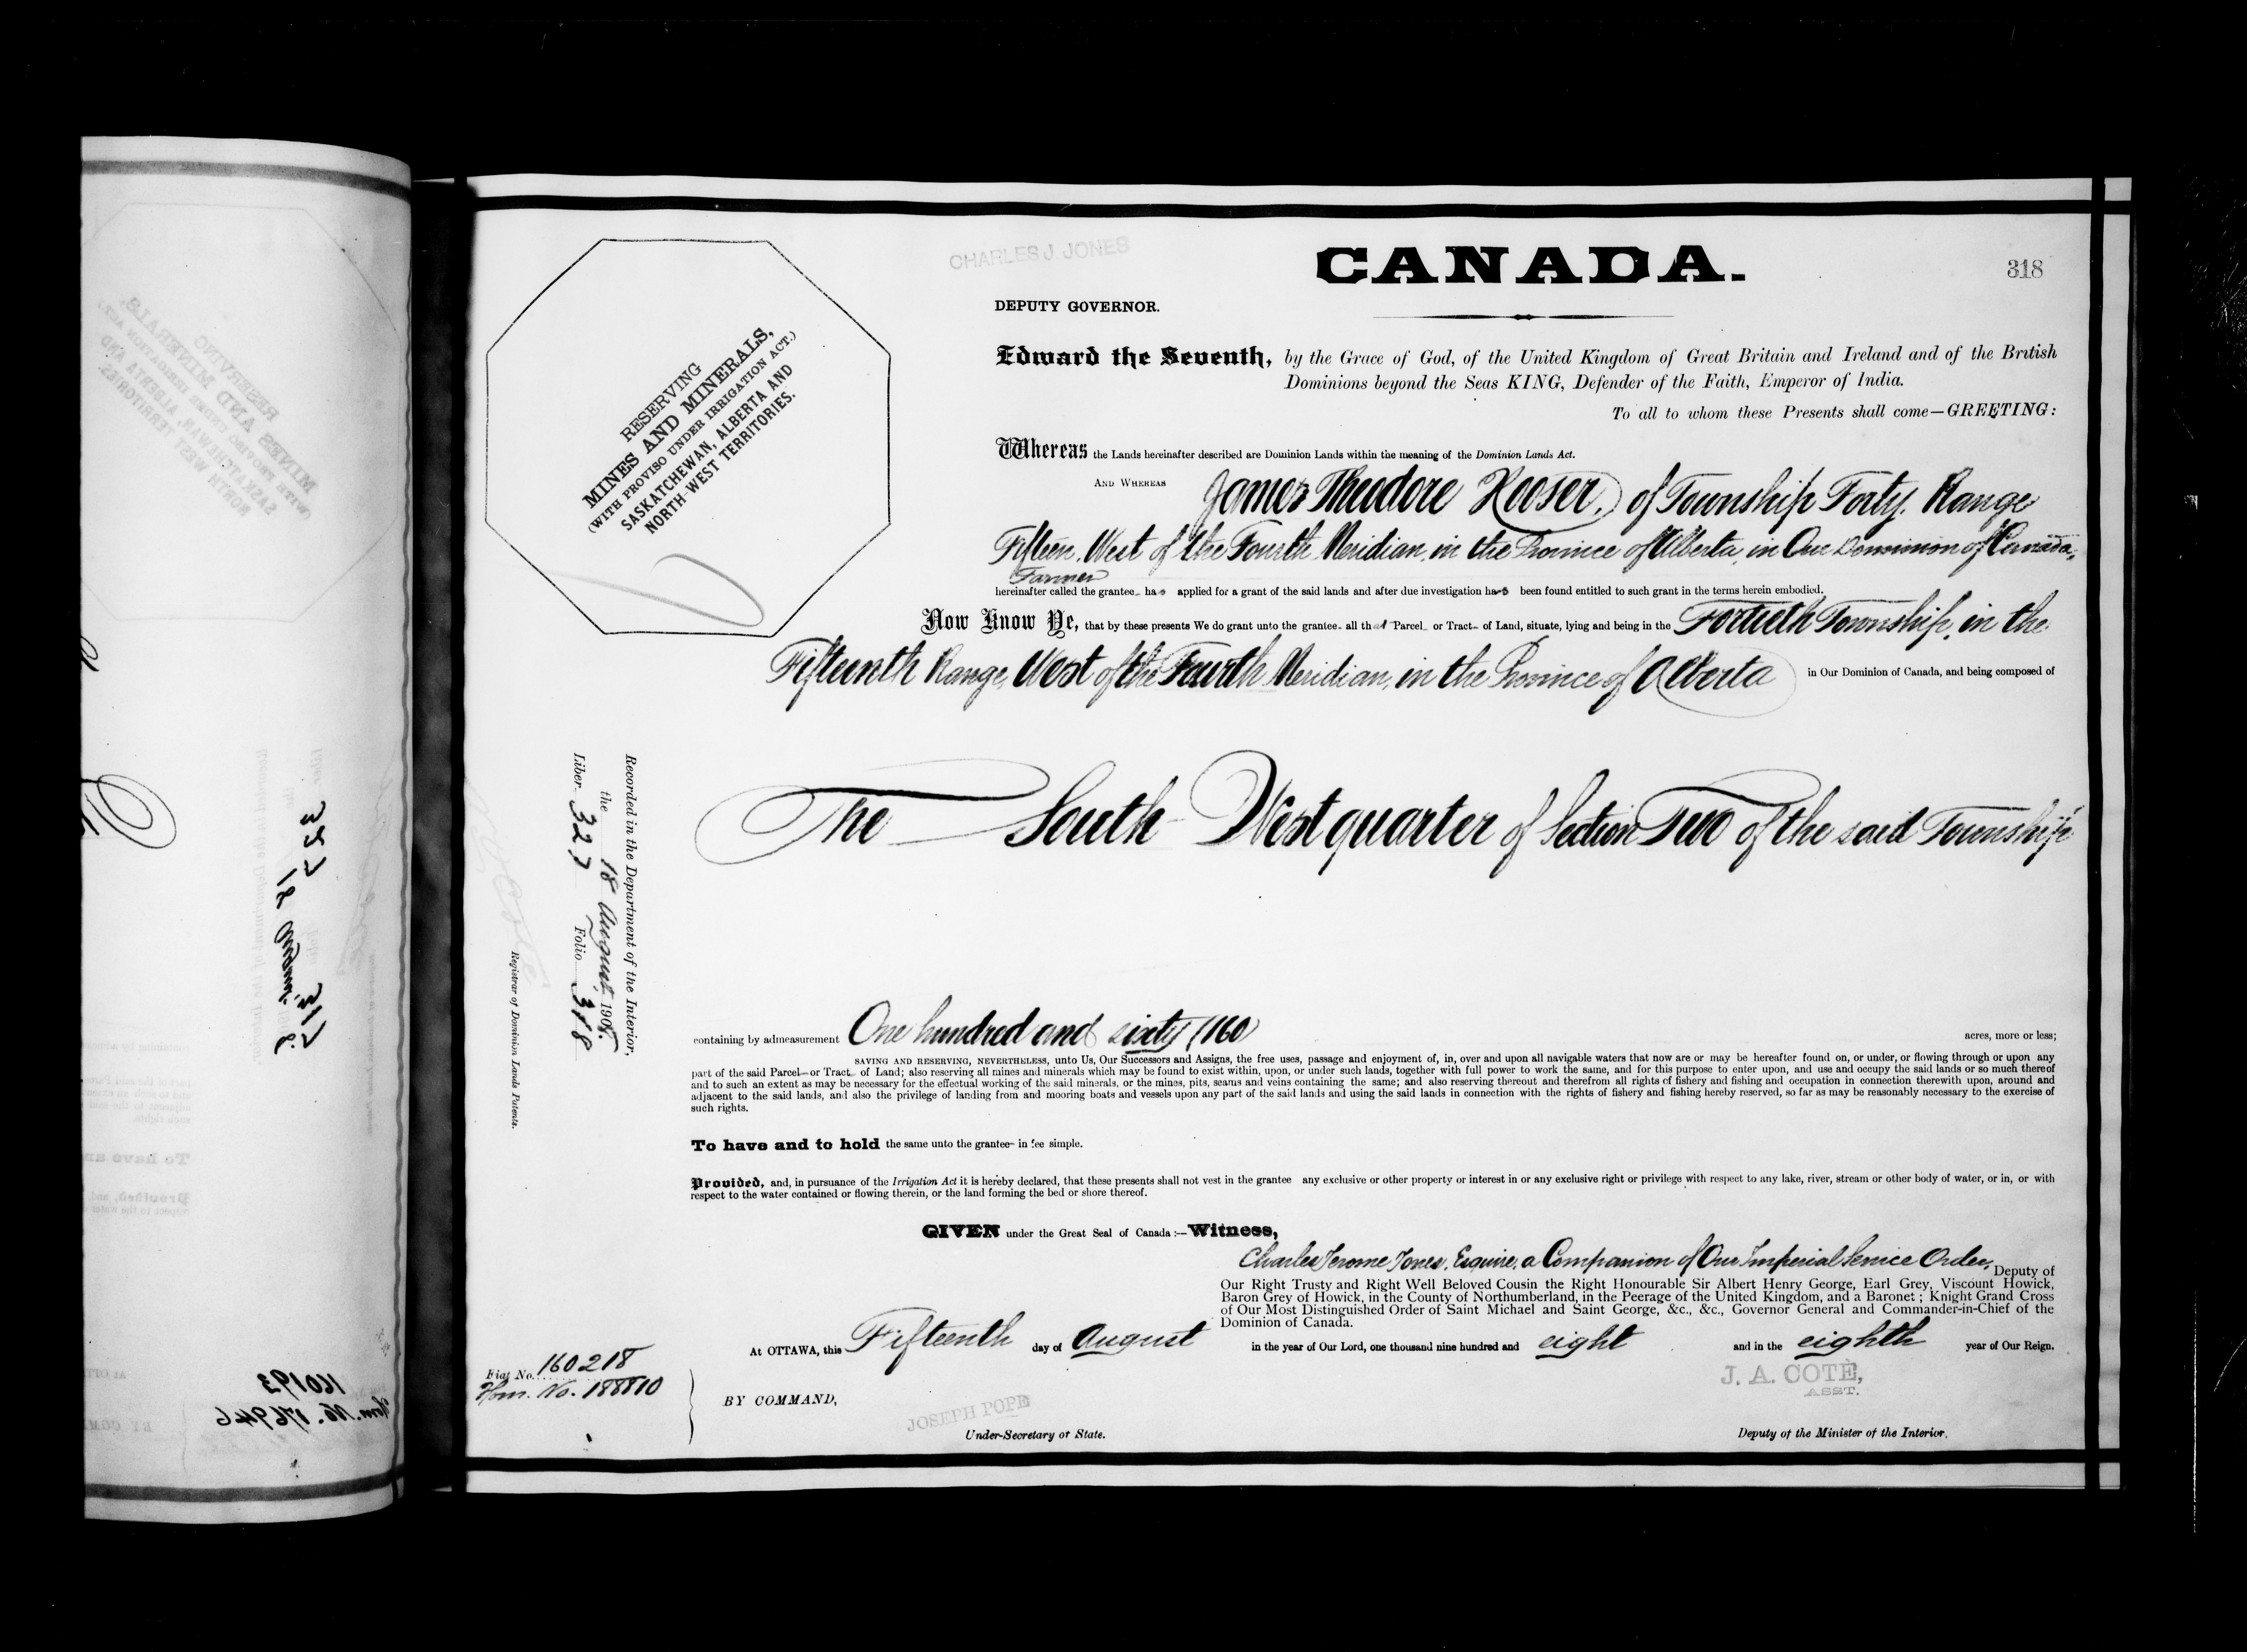 CHARLES J. JONES
CANADA.
318
DEPUTY GOVERNOR.
Edward the Seventh, by the Grace of God, of the United Kingdom of Great Britain and Ireland and of the British
Dominions beyond the Seas KING, Defender of the Faith, Emperor of India.
To all to whom these Presents shall come—GREETING:
RESERVING
MINES AND MINERALS,
(WITH PROVISO UNDER IRRIGATION ACT.)
SASKATCHEWAN, ALBERTA AND
NORTH-WEST TERRITORIES.
Whereas the Lands hereinafter described are Dominion Lands within the meaning of the Dominion Lands Act.
AND WHEREAS James Theodore Kooser, of Township Forty, Range
Fifteen, West of the Fourth Meridian, in the Province of Alberta, in Our Dominion of Canada,
Farmer
hereinafter called the grantee has applied for a grant of the said lands and after due investigation has been found entitled to such grant in the terms herein embodied.
Now Know Ye, that by these presents We do grant unto the grantee all that Parcel or Tract of Land, situate, lying and being in the Fortieth Township, in the
Fifteenth Range, West of the Fourth Meridian, in the Province of Alberta in Our Dominion of Canada, and being composed of
The South West quarter of Section Two of the said Township
Recorded in the Department of the Interior,
the 18 August, 1908.
Liber 327 Folio 318
Registrar of Dominion Lands Patents.
containing by admeasurement One hundred and sixty (160) acres, more or less;
SAVING AND RESERVING, NEVERTHELESS, unto Us, Our Successors and Assigns, the free uses, passage and enjoyment of, in, over and upon all navigable waters that now are or may be hereafter found on, or under, or flowing through or upon any
part of the said Parcel or Tract of Land; also reserving all mines and minerals which may be found to exist within, upon, or under such lands, together with full power to work the same, and for this purpose to enter upon, and use and occupy the said lands or so much thereof
and to such an extent as may be necessary for the effectual working of the said minerals, or the mines, pits, seams and veins containing the same; and also reserving thereout and therefrom all rights of fishery and fishing and occupation in connection therewith upon, around and
adjacent to the said lands, and also the privilege of landing from and mooring boats and vessels upon any part of the said lands and using the said lands in connection with the rights of fishery and fishing hereby reserved, so far as may be reasonably necessary to the exercise of
such rights.
To have and to hold the same unto the grantee in fee simple.
Provided, and, in pursuance of the Irrigation Act it is hereby declared, that these presents shall not vest in the grantee any exclusive or other property or interest in or any exclusive right or privilege with respect to any lake, river, stream or other body of water, or in, or with
respect to the water contained or flowing therein, or the land forming the bed or shore thereof.
GIVEN under the Great Seal of Canada :— Witness,
Charles Jerome Jones, Esquire, a Companion of Our Imperial Service Order, Deputy of
Our Right Trusty and Right Well Beloved Cousin the Right Honourable Sir Albert Henry George, Earl Grey, Viscount Howick,
Baron Grey of Howick, in the County of Northumberland, in the Peerage of the United Kingdom, and a Baronet; Knight Grand Cross
of Our Most Distinguished Order of Saint Michael and Saint George, &c., &c., Governor General and Commander-in-Chief of the
Dominion of Canada.
At OTTAWA, this Fifteenth day of August in the year of Our Lord, one thousand nine hundred and eight and in the eighth year of Our Reign.
Fiat No. 160218
Hom. No. 188810
BY COMMAND,
JOSEPH POPE
Under-Secretary of State.
J. A. COTÉ,
ASST.
Deputy of the Minister of the Interior.